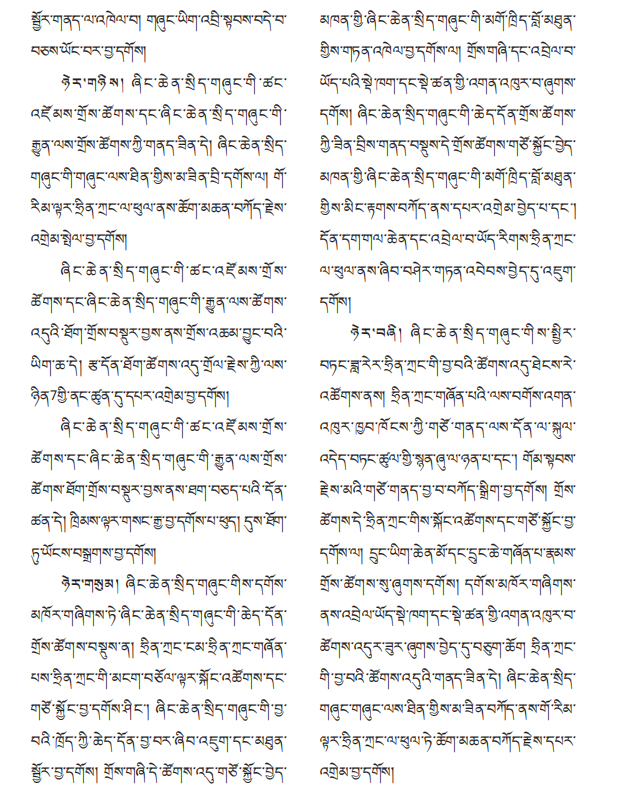 སྦྱོར་གནད་ལ་འཁེལ་བ། གཞུང་ཡིག་འབྲི་སྟབས་བདེ་བ་
བཅས་ཡོང་བར་བྱ་དགོས།
ཉེར་གཉིས། ཞིང་ཆེན་སྲིད་གཞུང་གི་ཚང་
འཛོམས་གྲོས་ཚོགས་དང་ཞིང་ཆེན་སྲིད་གཞུང་གི་
རྒྱུན་ལས་གྲོས་ཚོགས་ཀྱི་གནད་ཟིན་དེ། ཞིང་ཆེན་སྲིད་
གཞུང་གི་གཞུང་ལས་ཐིན་གྱིས་མ་ཟིན་བྲི་དགོས་ལ། གོ་
རིམ་ལྟར་ཧྲིན་ཀྲང་ལ་ཕུལ་ནས་ཆོག་མཆན་བཀོད་རྗེས་
འགྲེམ་སྤེལ་བྱ་དགོས།
ཞིང་ཆེན་སྲིད་གཞུང་གི་ཚང་འཛོམས་གྲོས་
ཚོགས་དང་ཞིང་ཆེན་སྲིད་གཞུང་གི་རྒྱུན་ལས་ཚོགས་
འདུའི་ཐོག་གྲོས་བསྡུར་བྱས་ནས་གྲོས་འཆམ་བྱུང་བའི་
ཡིག་ཆ་དེ། རྩ་དོན་ཐོག་ཚོགས་འདུ་གྲོལ་རྗེས་ཀྱི་ལས་
ཉིན7གྱི་ནང་ཚུན་དུ་དཔར་འགྲེམ་བྱ་དགོས།
ཞིང་ཆེན་སྲིད་གཞུང་གི་ཚང་འཛོམས་གྲོས་
ཚོགས་དང་ཞིང་ཆེན་སྲིད་གཞུང་གི་རྒྱུན་ལས་གྲོས་
ཚོགས་ཐོག་གྲོས་བསྡུར་བྱས་ནས་ཐག་བཅད་པའི་དོན་
ཚན་དེ། ཁྲིམས་ལྟར་གསང་རྒྱ་བྱ་དགོས་པ་ཕུད། དུས་ཐོག་
ཏུ་ཡོངས་བསྒྲགས་བྱ་དགོས།
ཉེར་གསུམ། ཞིང་ཆེན་སྲིད་གཞུང་གིས་དགོས་
མཁོར་གཞིགས་ཏེ་ཞིང་ཆེན་སྲིད་གཞུང་གི་ཆེད་དོན་
གྲོས་ཚོགས་བསྡུས་ན། ཧྲིན་ཀྲང་ངམ་ཧྲིན་ཀྲང་གཞོན་
པས་ཧྲིན་ཀྲང་གི་མངག་བཅོལ་ལྟར་སྐོང་འཚོགས་དང་
གཙོ་སྐྱོང་བྱ་དགོས་ཤིང་། ཞིང་ཆེན་སྲིད་གཞུང་གི་བྱ་
བའི་ཁྲོད་ཀྱི་ཆེད་དོན་བྱ་བར་ཞིབ་འཇུག་དང་མཐུན་
སྦྱོར་བྱ་དགོས། གྲོས་གཞི་དེ་ཚོགས་འདུ་གཙོ་སྐྱོང་བྱེད་
མཁན་གྱི་ཞིང་ཆེན་སྲིད་གཞུང་གི་མགོ་ཁྲིད་བློ་མཐུན་
གྱིས་གཏན་འཁེལ་བྱ་དགོས་ལ། གྲོས་གཞི་དང་འབྲེལ་བ་
ཡོད་པའི་སྡེ་ཁག་དང་སྡེ་ཚན་གྱི་འགན་འཁུར་བ་ཞུགས་
དགོས། ཞིང་ཆེན་སྲིད་གཞུང་གི་ཆེད་དོན་གྲོས་ཚོགས་
ཀྱི་ཟིན་བྲིས་གནད་བསྡུས་དེ་གྲོས་ཚོགས་གཙོ་སྐྱོང་བྱེད་
མཁན་གྱི་ཞིང་ཆེན་སྲིད་གཞུང་གི་མགོ་ཁྲིད་བློ་མཐུན་
གྱིས་མིང་རྟགས་བཀོད་ནས་དཔར་འགྲེམ་བྱེད་པ་དང་།
དོན་དག་གལ་ཆེན་དང་འབྲེལ་བ་ཡོད་རིགས་ཧྲིན་ཀྲང་
ལ་ཕུལ་ནས་ཞིབ་བཤེར་གཏན་འབེབས་བྱེད་དུ་འཇུག་
དགོས།
ཉེར་བཞི། ཞིང་ཆེན་སྲིད་གཞུང་གིས་སྤྱིར་
བཏང་ཟླ་རེར་ཧྲིན་ཀྲང་གི་བྱ་བའི་ཚོགས་འདུ་ཐེངས་རེ་
འཚོགས་ནས། ཧྲིན་ཀྲང་གཞོན་པའི་ལས་བགོས་འགན་
འཁུར་ཁྱབ་ཁོངས་ཀྱི་གཙོ་གནད་ལས་དོན་ལ་སྐུལ་
འདེད་བཏང་ཚུལ་གྱི་སྙན་ཞུ་ལ་ཉན་པ་དང་། གོམ་སྟབས་
རྗེས་མའི་གཙོ་གནད་བྱ་བ་བཀོད་སྒྲིག་བྱ་དགོས། གྲོས་
ཚོགས་དེ་ཧྲིན་ཀྲང་གིས་སྐོང་འཚོགས་དང་གཙོ་སྐྱོང་བྱ་
དགོས་ལ། དྲུང་ཡིག་ཆེན་མོ་དང་དྲུང་ཆེ་གཞོན་པ་རྣམས་
གྲོས་ཚོགས་སུ་ཞུགས་དགོས། དགོས་མཁོར་གཞིགས་
ནས་འབྲེལ་ཡོད་སྡེ་ཁག་དང་སྡེ་ཚན་གྱི་འགན་འཁུར་བ་
ཚོགས་འདུར་ཟུར་ཞུགས་བྱེད་དུ་བཅུག་ཆོག ཧྲིན་ཀྲང་
གི་བྱ་བའི་ཚོགས་འདུའི་གནད་ཟིན་དེ། ཞིང་ཆེན་སྲིད་
གཞུང་གཞུང་ལས་ཐིན་གྱིས་མ་ཟིན་བཀོད་ནས་གོ་རིམ་
ལྟར་ཧྲིན་ཀྲང་ལ་ཕུལ་ཏེ་ཆོག་མཆན་བཀོད་རྗེས་དཔར་
འགྲེམ་བྱ་དགོས།